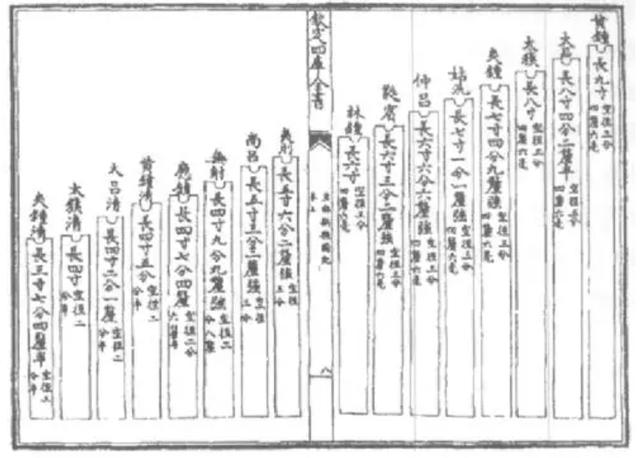 黃鐘
長九寸
空徑三分
四釐六毫
大呂
長八寸四分二釐半
空徑三分
四釐六毫
太簇
長八寸
空徑三分
四釐六毫
夾鐘
長七寸四分九釐強
空徑三分
四釐六毫
姑洗
長七寸一分一釐強
空徑三分
四釐六毫
仲呂
長六寸六分六釐強
空徑三分
四釐六毫
蕤賓
長六寸三分二釐強
空徑三分
四釐六毫
林鐘
長六寸
空徑三分
四釐六毫
欽定四庫全書
皇祐新樂圖記
卷上
八
夷則
長五寸六分二釐強
空徑
三分
南呂
長五寸三分三釐強
空徑
三分
無射
長四寸九分九釐強
空徑二
分八釐
應鐘
長四寸七分四釐
空徑二分
六釐半
黃鐘清
長四寸五分
空徑二
分半
大呂清
長四寸二分一釐
空徑二
分半
太簇清
長四寸
空徑二
分半
夾鐘清
長三寸七分四釐半
空徑二
分半